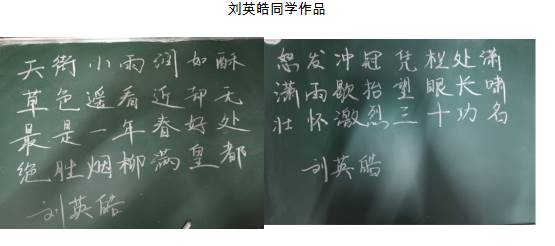 刘英皓同学作品
天街小雨润如酥
草色遥看近却无
最是一年春好处
绝胜烟柳满皇都
刘英皓
怒发冲冠凭栏处潇
潇雨歇抬望眼长啸
壮怀激烈三十功名
刘英皓